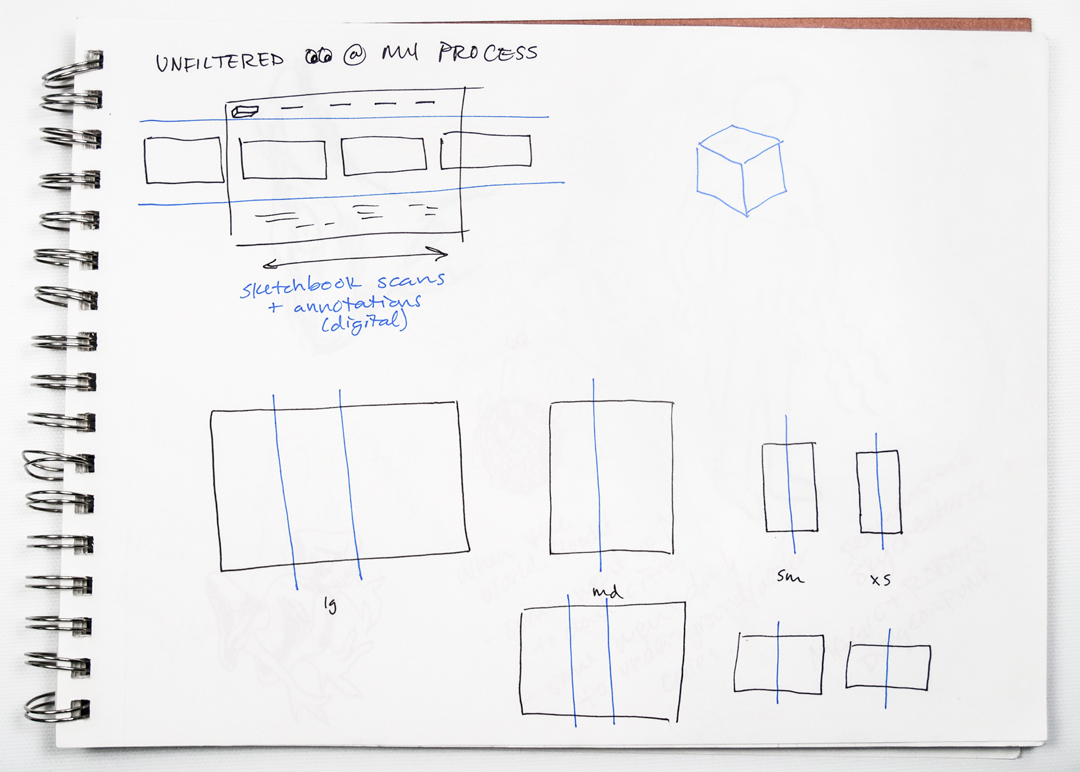 UNFILTERED 👀 @ MY PROCESS
sketchbook scans
+ annotations
(digital)
lg
md
sm
xs